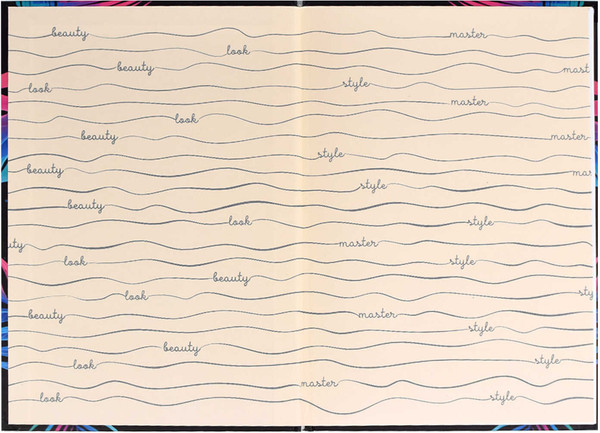 beauty master
look
beauty mast
look style
master
look
beauty master
style
beauty mas
style
beauty
look style
uty master
look style
beauty
look sty
beauty master
style
beauty
look style
master
look style